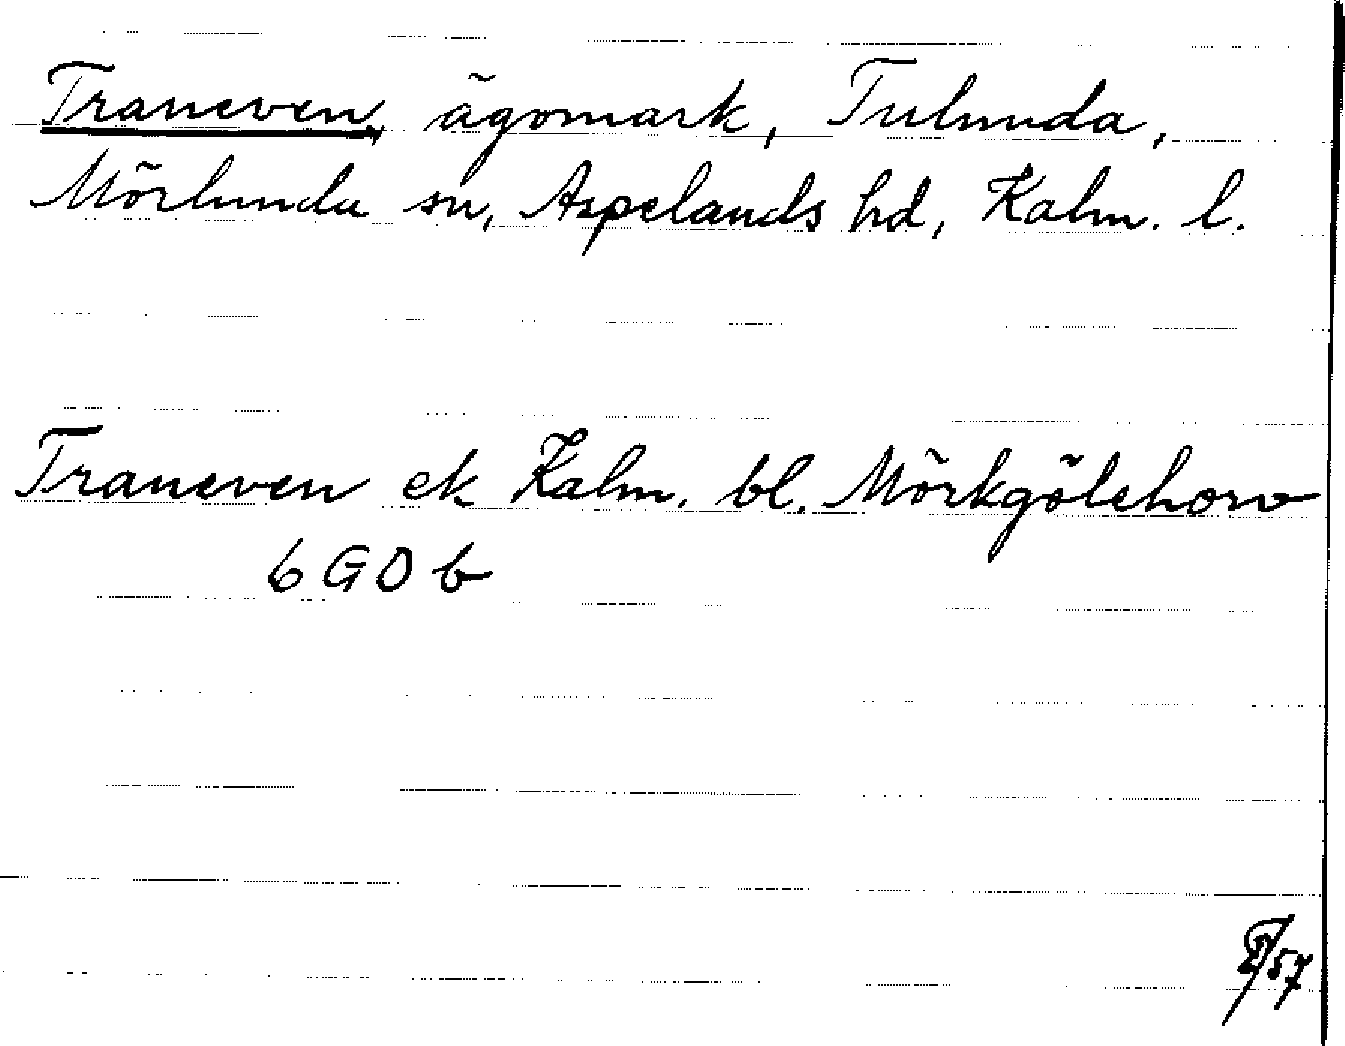 Traneven, ägomark, Tulunda,
Mörlunda sn, Aspelands hd, Kalm. l.
Traneven ek Kalm. bl. Mörkgölehorv
6 G 0 b